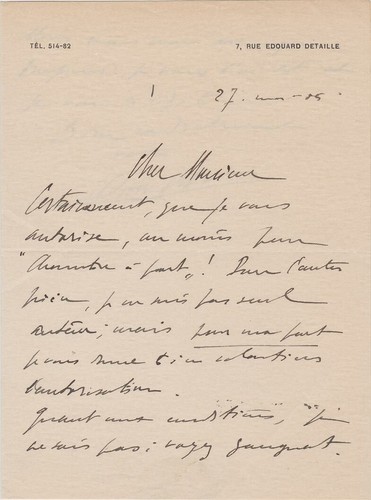 TÉL. 514-82
7, RUE EDOUARD DETAILLE
27. mai - 05
Cher Monsieur
Certainement, que je vous
autorise, au moins pour
"Chambre à part", ! Pour l'autre
pièce, je ne suis pas seul
auteur ; mais pour ma part
je vous donne très volontiers
l'autorisation.
Quant aux conditions, je
ne sais pas ; voyez Gangnat.